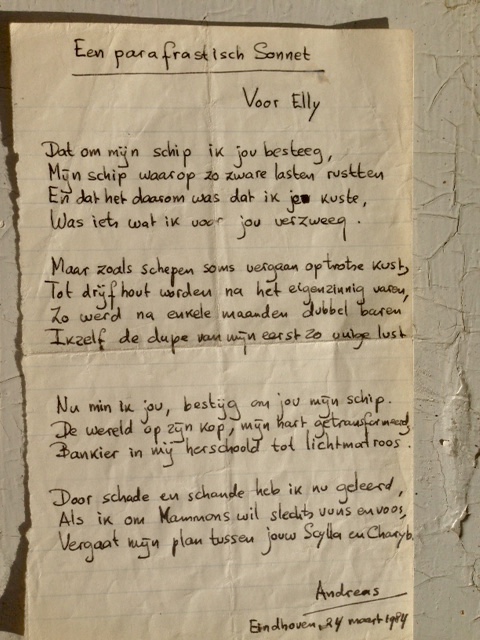 Een parafrastisch Sonnet
Voor Elly
Dat om mijn schip ik jou besteeg,
Mijn schip waarop zo zware lasten rustten
En dat het daarom was dat ik je kuste,
Was iets wat ik voor jou verzweeg.
Maar zoals schepen soms vergaan op trotse kust,
Tot drijfhout worden na het eigenzinnig varen,
Zo werd na enkele maanden dubbel baren
Ikzelf de dupe van mijn eerst zo vuige lust
Nu min ik jou, bestijg om jou mijn schip.
De wereld op zijn kop, mijn hart getransformeerd,
Bankier in mij herschoold tot lichtmatroos.
Door schade en schande heb ik nu geleerd,
Als ik om Mammons wil slechts vuns en voos,
Vergaat mijn plan tussen jouw Scylla en Charyb.
Andreas
Eindhoven, 24 maart 1984